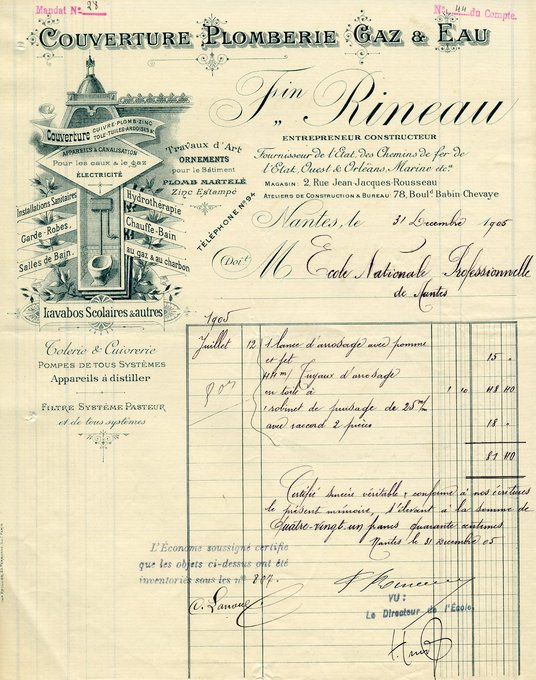 Mandat N° 28
N° 44 du Compte.
COUVERTURE PLOMBERIE GAZ & EAU
Fin Rineau
ENTREPRENEUR CONSTRUCTEUR
Fournisseur de l'Etat, des Chemins de fer de
l'Etat, Ouest & Orléans, Marine etc.
MAGASIN: 2, Rue Jean-Jacques-Rousseau
ATELIERS DE CONSTRUCTION & BUREAU 78, Boul.d Babin-Chevaye
TÉLÉPHONE N° 94
Couverture
CUIVRE-PLOMB-ZINC
TOLE-TUILES-ARDOISES &
APPAREILS & CANALISATION
Pour les eaux & le gaz
ÉLECTRICITÉ
Travaux d'Art
ORNEMENTS
pour le Bâtiment
PLOMB MARTELÉ
Zinc Estampé
Installations Sanitaires
Garde-Robes
Salles de Bain
Hydrothérapie
Chauffe-Bain
au gaz & au charbon
Lavabos Scolaires & autres
Tolerie & Cuivrerie
POMPES DE TOUS SYSTÈMES
Appareils à distiller
FILTRE SYSTÈME PASTEUR
et de tous systèmes
Nantes, le 31 Decembre 1905
Doit M Ecole Nationale Professionnelle
de Nantes
1905
Juillet 12 1 lance d'arrosage avec pomme
et jet 15 "
44m/ Tuyaux d'arrosage
en toile à 1 10 48 40
807
1 robinet de puisage de 25 m/m
avec raccord 2 pièces 18 "
81 40
Certifié sincère véritable & conforme à nos écritures
le présent mémoire, s'élevant à la somme de
Quatre-vingt-un francs quarante centimes
Nantes le 31 Decembre 05
L'Économe soussigné certifie
que les objets ci-dessus ont été
inventoriés sous les n° 807.
VU:
Le Directeur de l'École,